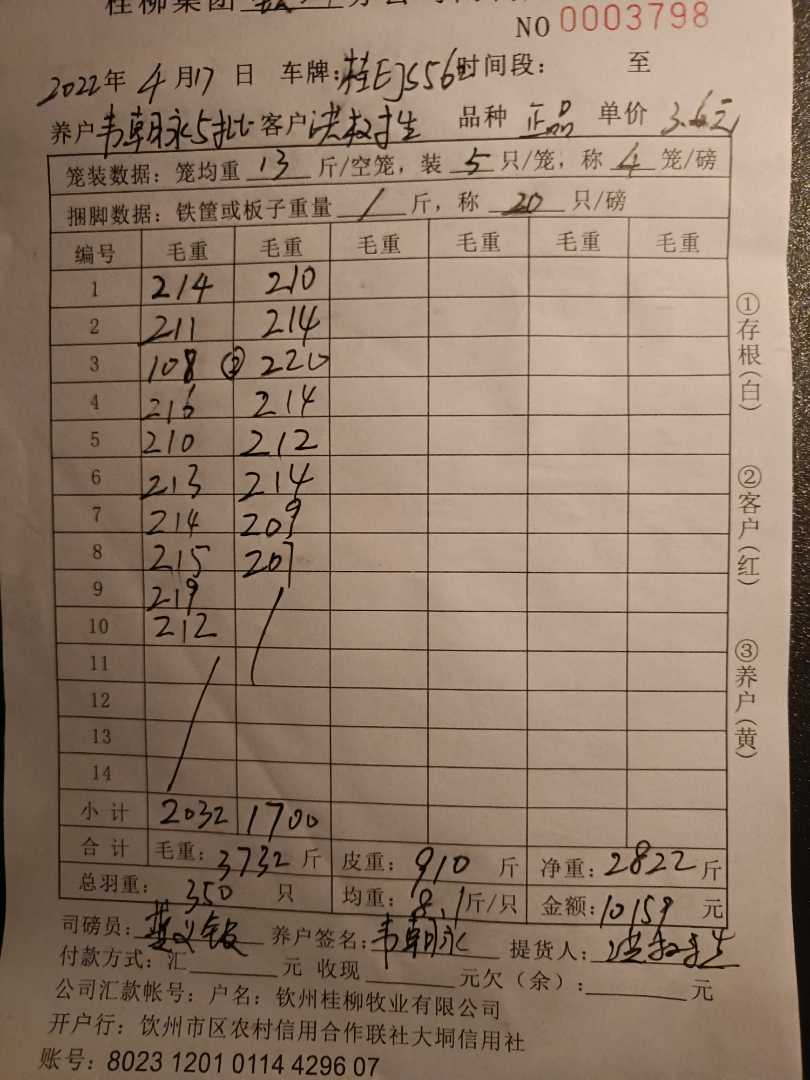 桂柳集团
NO 0003798
2022年 4月17日 车牌:桂EJS56 时间段: 至
养户 韦朝永5批 客户 洪叔生 品种 正品 单价 3.6元
笼装数据: 笼均重 13 斤/空笼, 装 5 只/笼, 称 4 笼/磅
捆脚数据: 铁筐或板子重量 / 斤, 称 20 只/磅
编号 毛重 毛重 毛重 毛重 毛重 毛重
1 214 210
2 211 214
3 108 ② 220
4 216 214
5 210 212
6 213 214
7 214 209
8 215 207
9 219
10 212
11
12
13
14
小计 2032 1700
合计 毛重: 3732 斤 皮重: 910 斤 净重: 2822 斤
总羽重: 350 只 均重: 8.1 斤/只 金额: 10159 元
司磅员: 养户签名: 韦朝永 提货人:
付款方式: 汇 元 收现 元欠(余): 元
公司汇款帐号: 户名: 钦州桂柳牧业有限公司
开户行: 钦州市区农村信用合作联社大垌信用社
账号: 8023 1201 0114 4296 07
①存根(白)
②客户(红)
③养户(黄)